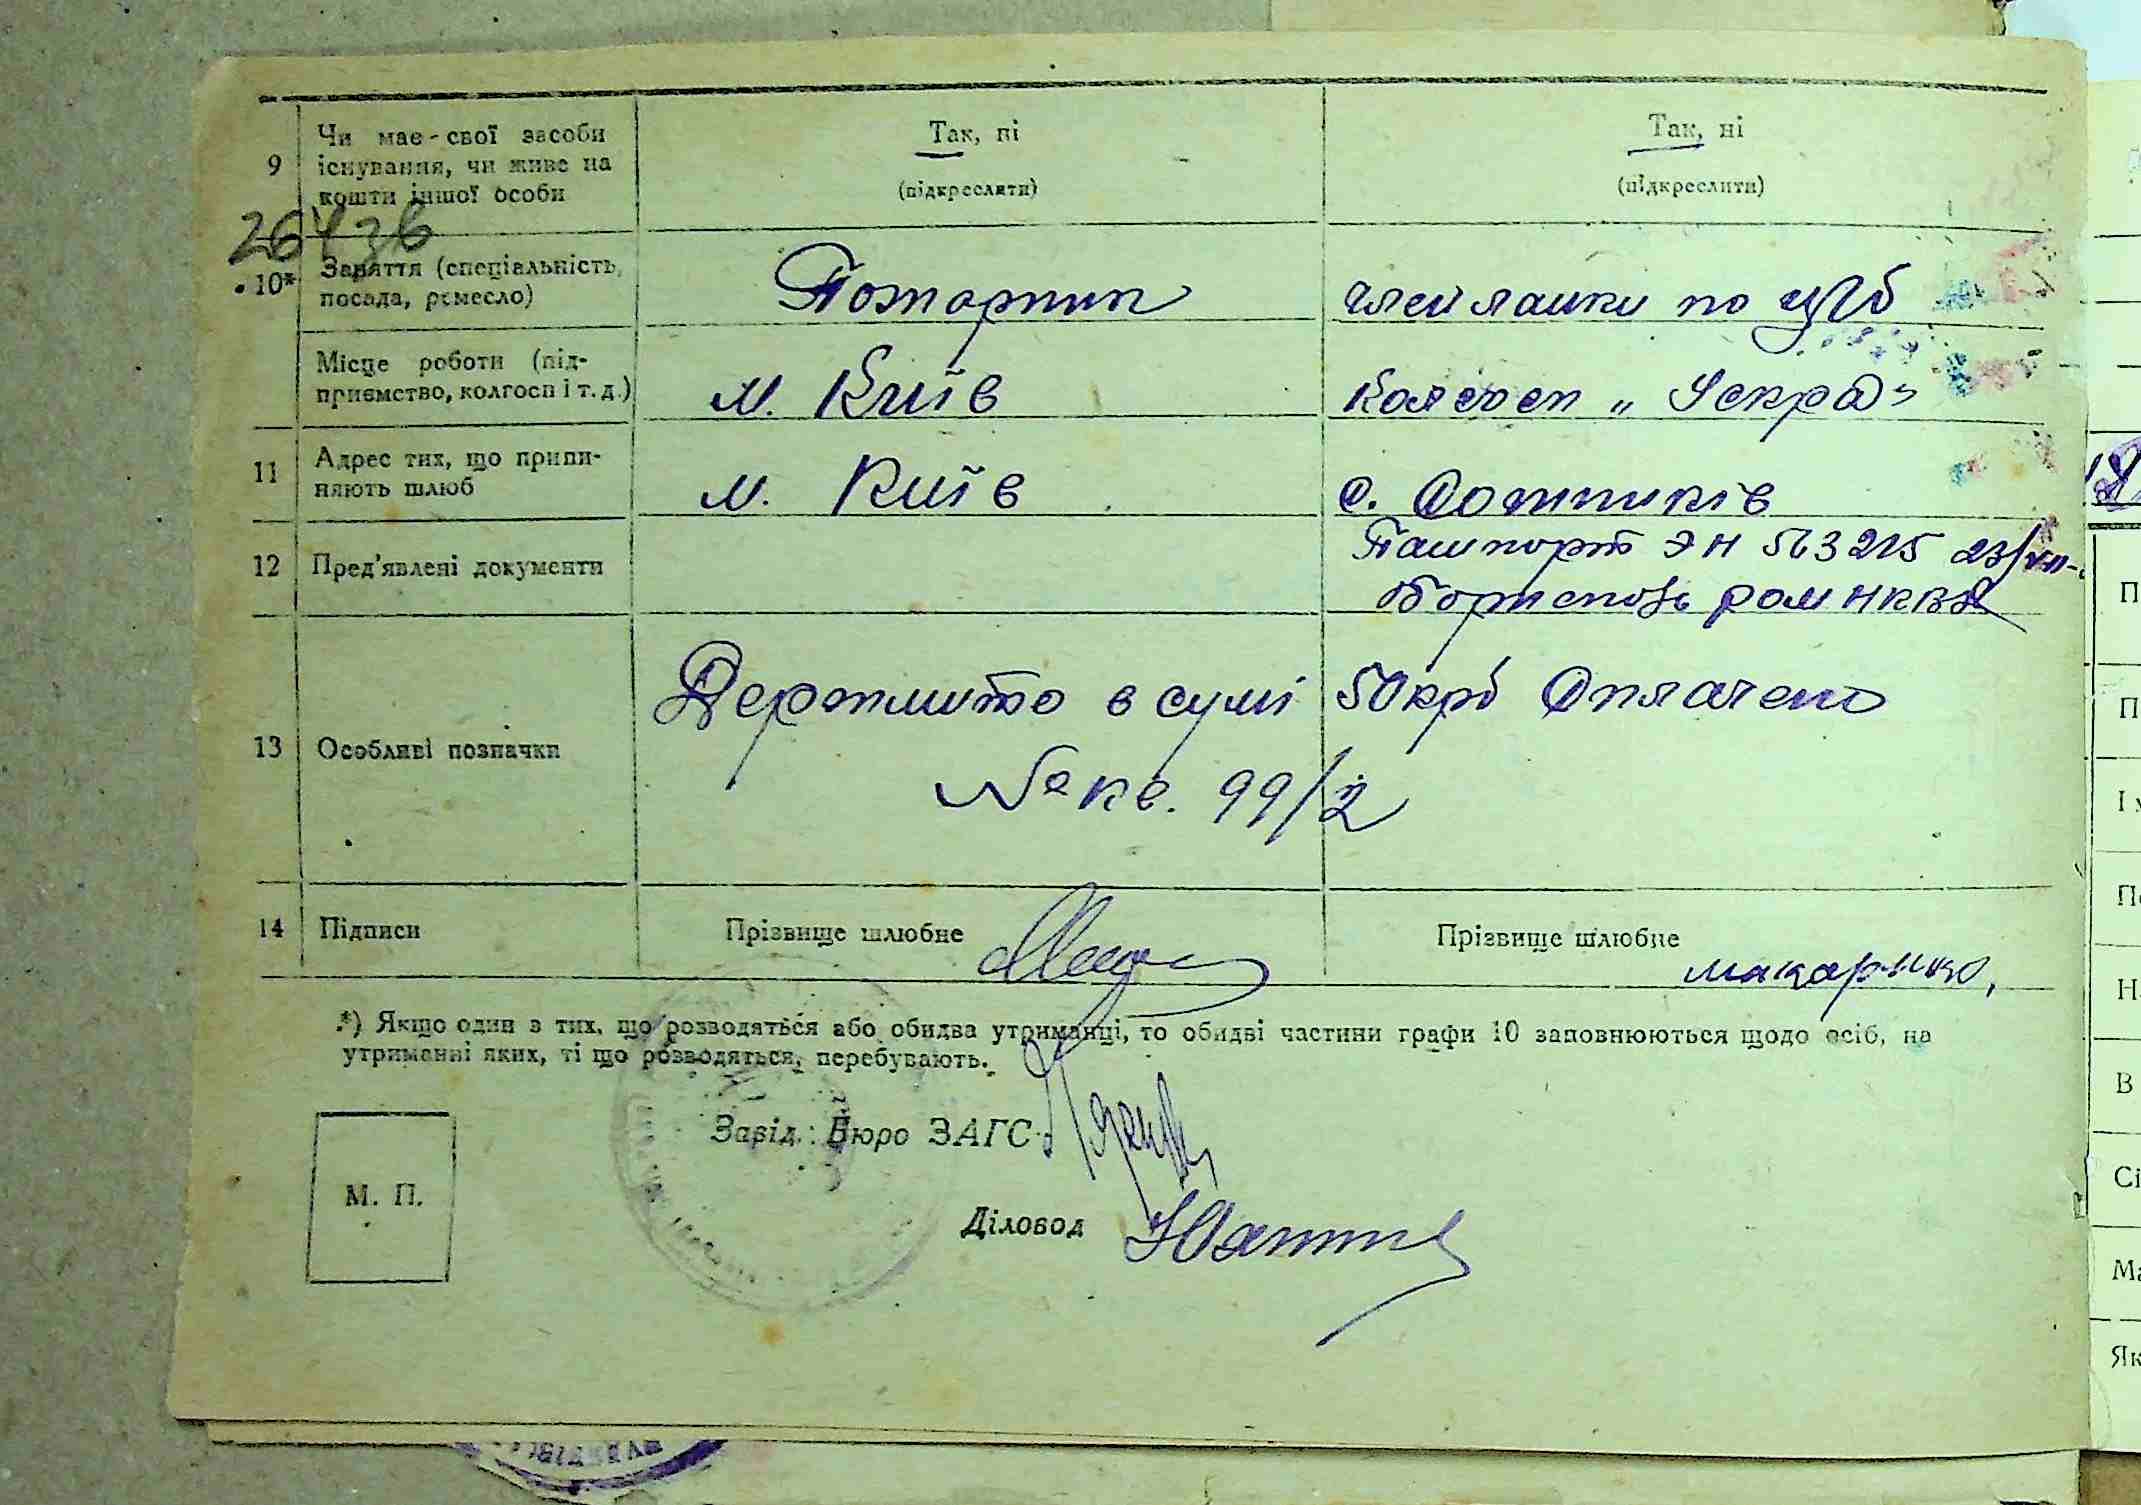 9 Чи має свої засоби існування, чи живе на кошти іншої особи
Так, ні (підкреслити)
Так, ні (підкреслити)
264зв
10* Заняття (спеціальність, посада, ремесло)
Пожарник
ланки по
Місце роботи (підприємство, колгосп і т. д.)
м. Київ
Колгосп „Іскра"
11 Адрес тих, що припиняють шлюб
м. Київ
с.
12 Пред'явлені документи
Пашпорт ЭН 563215 23/VII-
Бориспозь ром НКВД
13 Особливі позначки
Держмито в сумі 50 крб Оплачено
№ кв. 99/2
14 Підписи
Прізвище шлюбне
Прізвище шлюбне
*) Якщо один з тих, що розводяться або обидва утриманці, то обидві частини графи 10 заповнюються щодо осіб, на
утриманні яких, ті що розводяться, перебувають.
Завід. Бюро ЗАГС
М. П.
Діловод